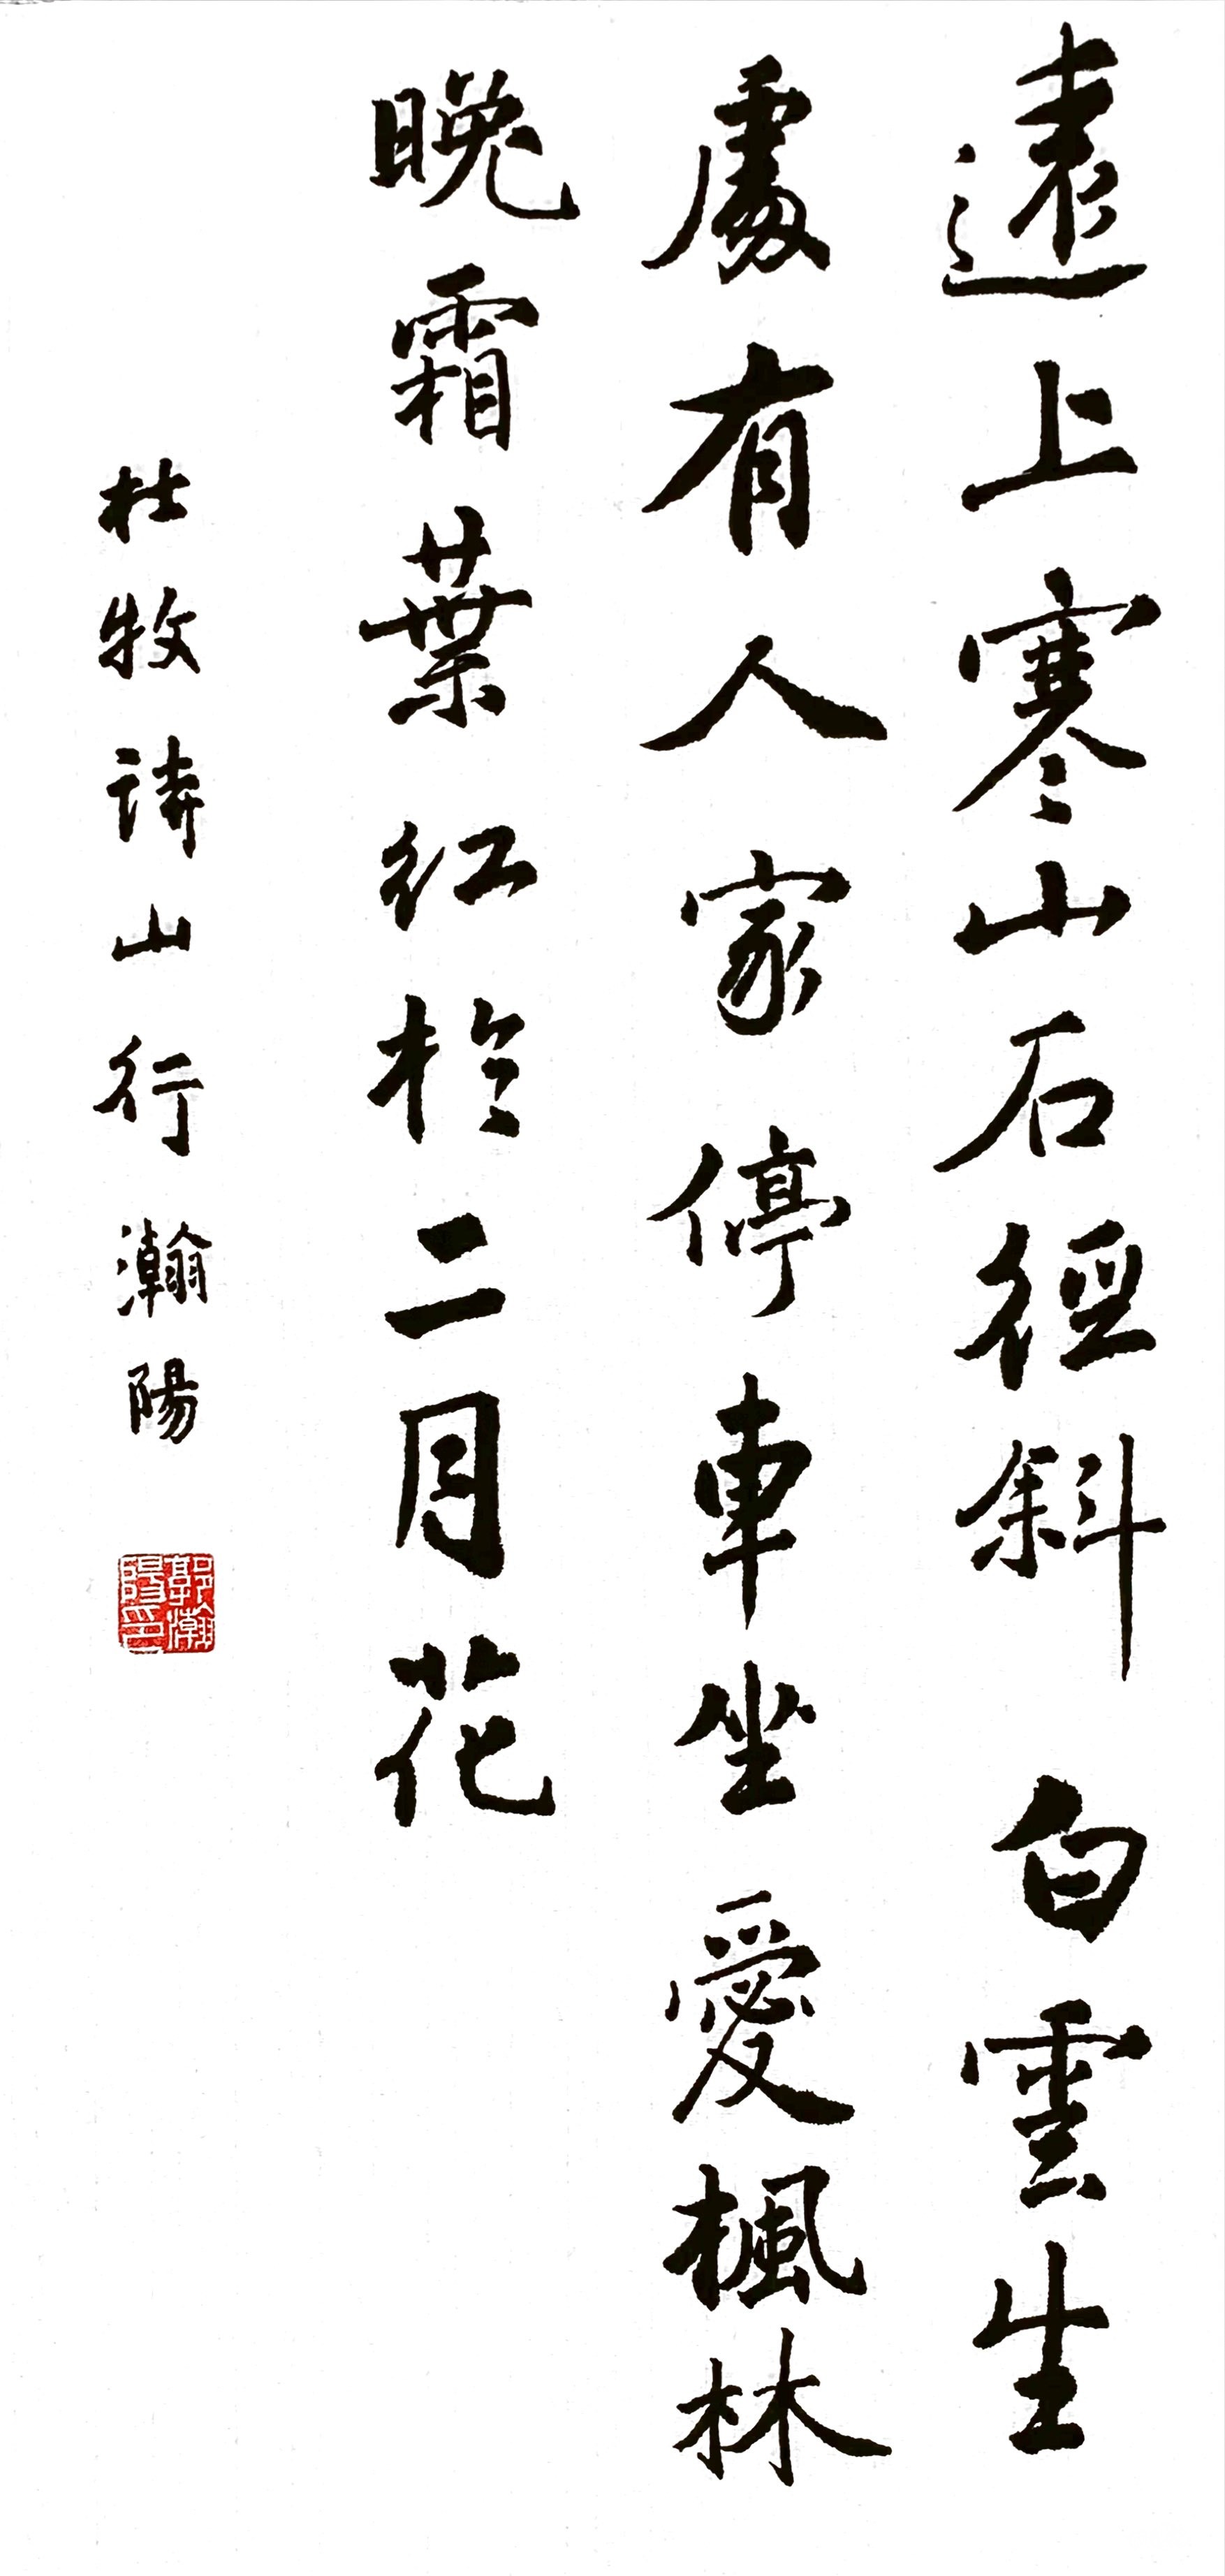 遠上寒山石徑斜白雲生
處有人家停車坐愛楓林
晚霜葉紅於二月花
杜牧詩山行瀚陽
郭瀚
陽印